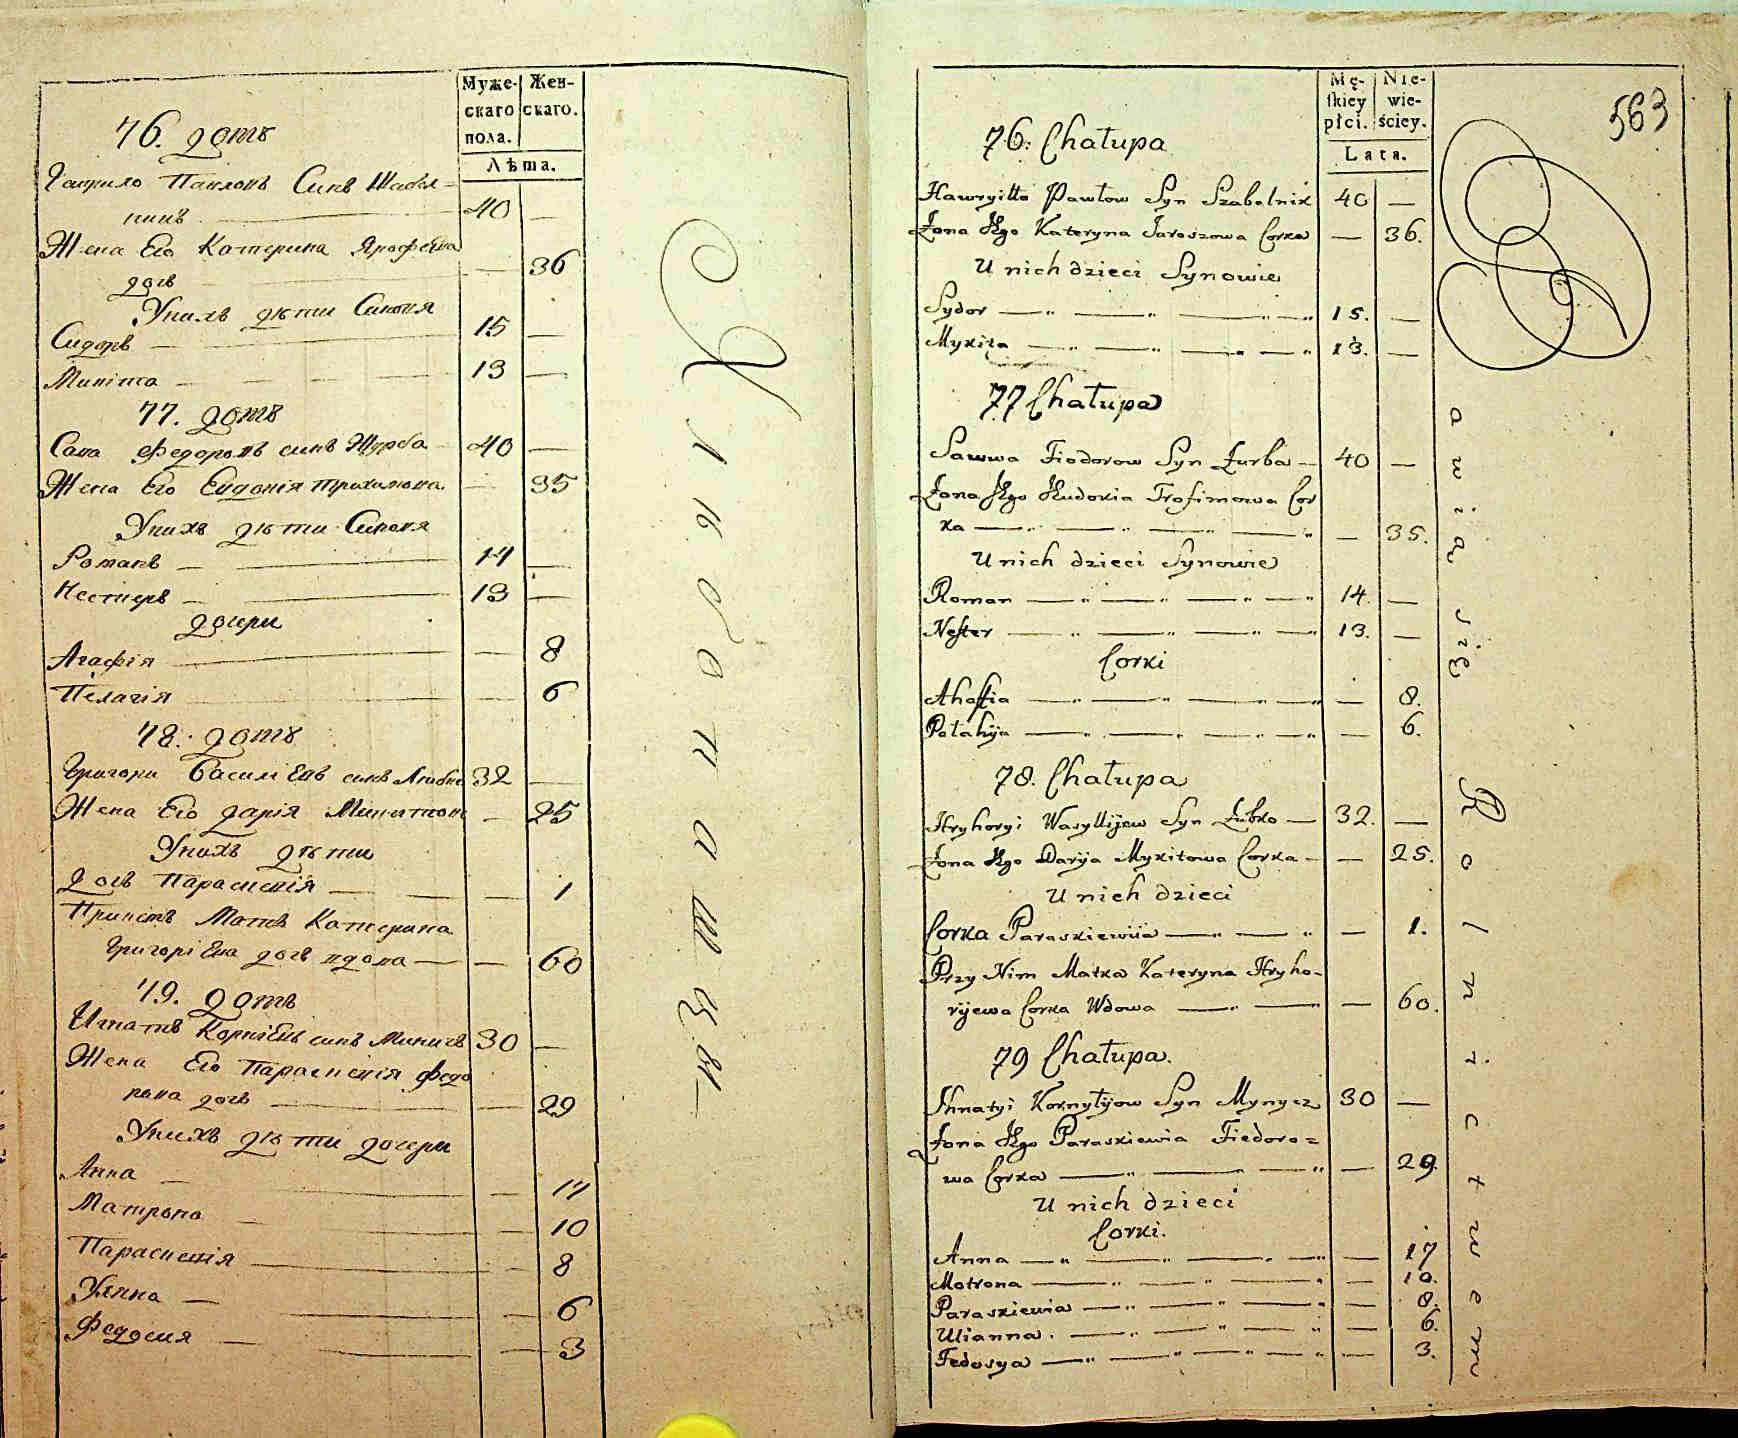 Муже-
скаго
пола.
Жен-
скаго.
Лѣта.
76. домъ
Гаврило Павловъ Синъ Шабел=
никъ 40 —
Жена Его Катерина Ярофѣева
дочь — 36
Унихъ дѣти Синовя
Сидоръ — 15 —
Микита — 13 —
77. домъ
Сава Федоровъ синъ Журба 40 —
Жена Его Евдокія Трохимова — 35
Унихъ дѣти Синовя
Романъ — 14 —
Нестеръ — 13 —
дочери
Агафія — 8
Пелагія — 6
78. домъ
Григори Василіевъ синъ 32 —
Жена Его Дарія Микитов — 25
Унихъ дѣти
дочь Параскевія — 1
Принемъ Матъ Катерина
Григоріева дочъ вдова — 60
79. домъ
Игнатъ Корніевъ синъ Миничъ 30 —
Жена Его Параскевія Федо
рова дочь — 29
Унихъ дѣти дочери
Анна — 17
Матрона — 10
Параскевія — 8
Улянна — 6
Федосия — 3
Mę-
skiey
płci.
Nie-
wie-
ściey.
Lata.
563
76. Chałupa
Hawryiłło Pawłow Syn Szabelnik 40 —
Żona Jego Kateryna Jaroszowa Corka — 36.
U nich dzieci Synowie
Sydor — 15. —
Mykita — 13. —
77 Chałupa
Sawwa Fiodorow Syn Żurba — 40 —
Żona Jego Eudokia Trofimowa Cor
ka — 35.
U nich dzieci Synowie
Roman — 14. —
Nester — 13. —
Corki
Ahafia — 8.
Pełahija — 6.
78. Chałupa
Hryhoryi Wasylijew Syn Łubko — 32. —
Żona Jego Darija Mykitowa Corka — 25.
U nich dzieci
Corka Paraskiewija — 1.
Przy Nim Matka Kateryna Hryho-
rijewa Corka Wdowa — 60.
79 Chałupa.
Ihnatyi Kornyłijow Syn Mynycz 30 —
Żona Jego Paraskiewia Fiedoro=
wa Corka — 29.
U nich dzieci
Corki.
Anna — 17
Motrona — 10.
Paraskiewia — 8.
Ulianna — 6.
Fedosya — 3.
awią się Rolnictwem